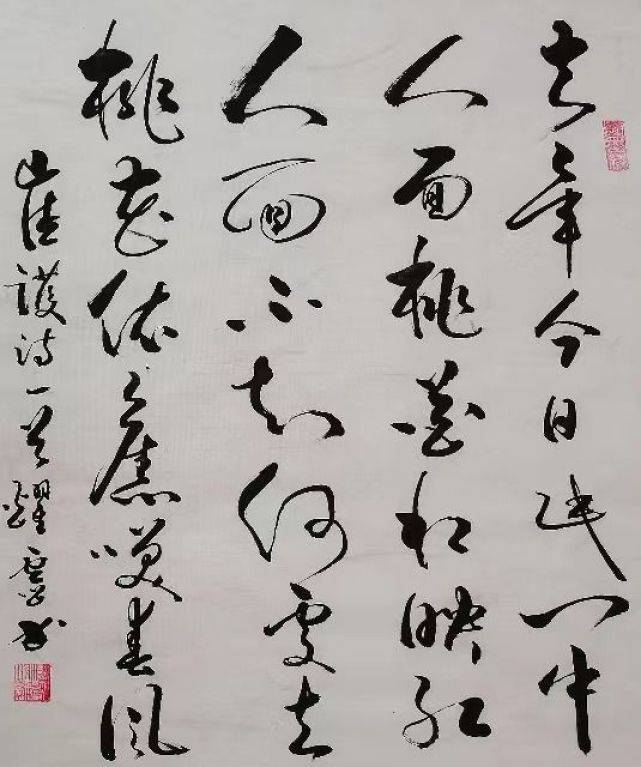 去年今日此门中
人面桃花相映红
人面不知何处去
桃花依舊笑春风
崔護诗一首 书